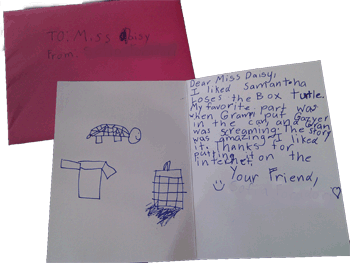 TO: Miss Daisy
From:
Dear Miss Daisy,
I liked Samantha
Loses the Box Turtle.
My favorite part was
when Gramn put
in the can, and Gran
was screaming. The story
was amazing. I liked
it. Thanks for
putting it on the
internet.
Your Friend,